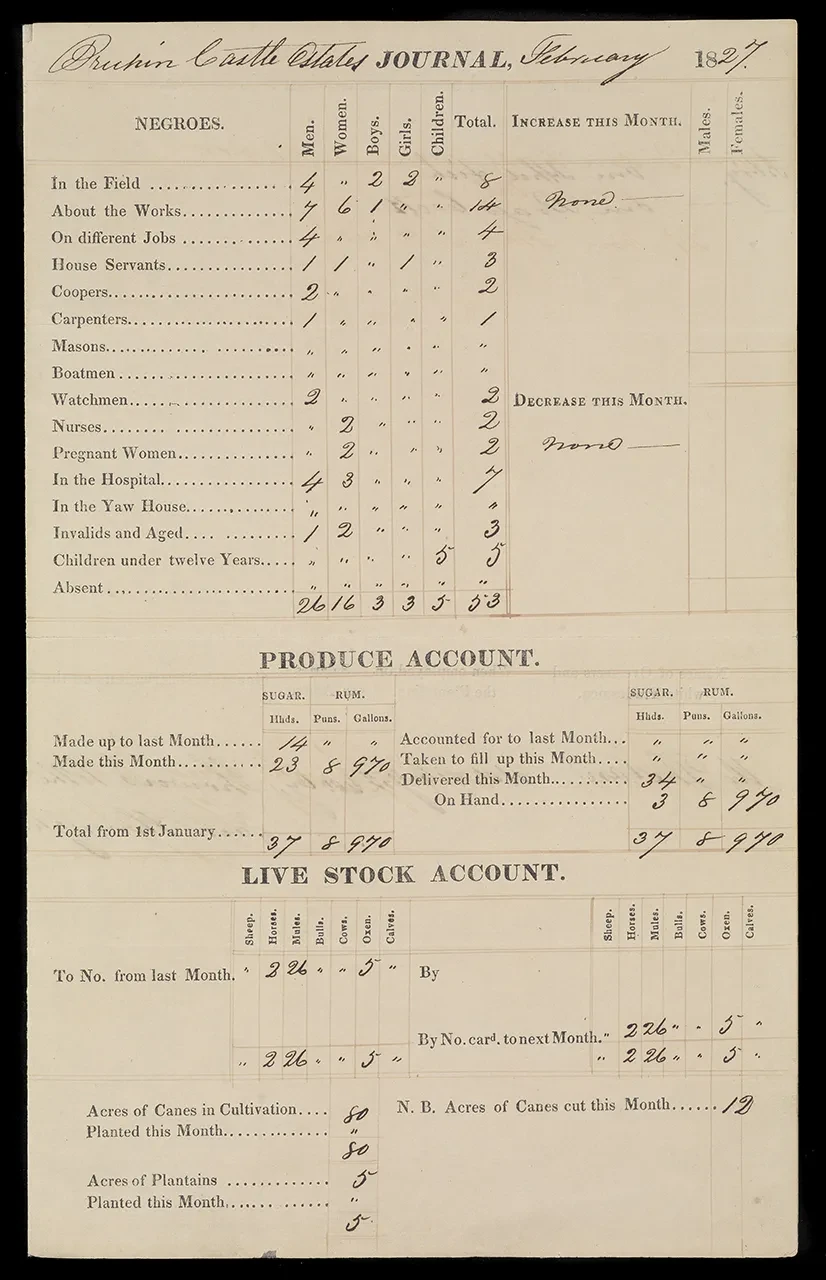 Bruhin Castle Estates JOURNAL, February 1827.
NEGROES. Men. Women. Boys. Girls. Children. Total. INCREASE THIS MONTH. Males. Females.
In the Field ................ 4 " 2 2 " 8
None.
About the Works............. 7 6 1 " " 14
On different Jobs ............ 4 " " " " 4
House Servants............... 1 1 " 1 " 3
Coopers...................... 2 " " " " 2
Carpenters.................... 1 " " " " 1
Masons...................... " " " " " "
Boatmen..................... " " " " " "
Watchmen................... 2 " " " " 2 DECREASE THIS MONTH.
Nurses....................... " 2 " " " 2
None
Pregnant Women.............. " 2 " " " 2
In the Hospital................ 4 3 " " " 7
In the Yaw House............. " " " " " "
Invalids and Aged.... ......... 1 2 " " " 3
Children under twelve Years..... " " " " 5 5
Absent....................... " " " " " "
26 16 3 3 5 53
PRODUCE ACCOUNT.
SUGAR. RUM. SUGAR. RUM.
Hhds. Puns. Gallons. Hhds. Puns. Gallons.
Made up to last Month...... 14 " " Accounted for to last Month... " " "
Made this Month........... 23 8 970 Taken to fill up this Month.... " " "
Delivered this Month.......... 34 " "
On Hand................ 3 8 970
Total from 1st January...... 37 8 970 37 8 970
LIVE STOCK ACCOUNT.
Sheep. Horses. Mules. Bulls. Cows. Oxen. Calves. Sheep. Horses. Mules. Bulls. Cows. Oxen. Calves.
To No. from last Month. " 2 26 " " 5 " By
By No. card. to next Month. " 2 26 " " 5 "
" 2 26 " " 5 " " 2 26 " " 5 "
Acres of Canes in Cultivation.... 80 N. B. Acres of Canes cut this Month...... 12
Planted this Month............. "
80
Acres of Plantains ............. 5
Planted this Month............ "
5